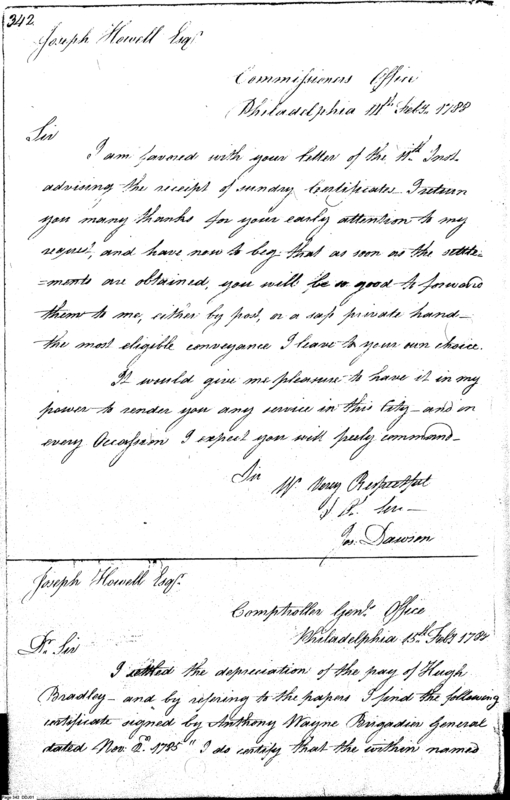 342
Joseph Howell Esqr.
Commissioners Office
Philadelphia Feby. 1788
Sir
I am favored with your letter of the Inst.
advising the receipt of sundry Certificates I return
you many thanks for your early attention to my
request, and have now to beg that as soon as the settle-
=ments are obtained, you will be so good to forward
them to me, either by post, or a safe private hand-
the most eligible conveyance I leave to your own choice.
It would give me pleasure to have it in my
power to render you any service in this City - and on
every Occassion I expect you will freely command -
Sir
Very Respectful
Ser -
Dawson
Joseph Howell Esqr.
Comptroller Genls. Office
Philadelphia 15th Feby 1788
Dr. Sir
I settled the depreciation of the pay of Hugh
Bradley - and by refering to the papers I find the following
certificate signed by Anthony Wayne Brigadier General
dated Nov. 2d. 1785 " I do certify that the within named